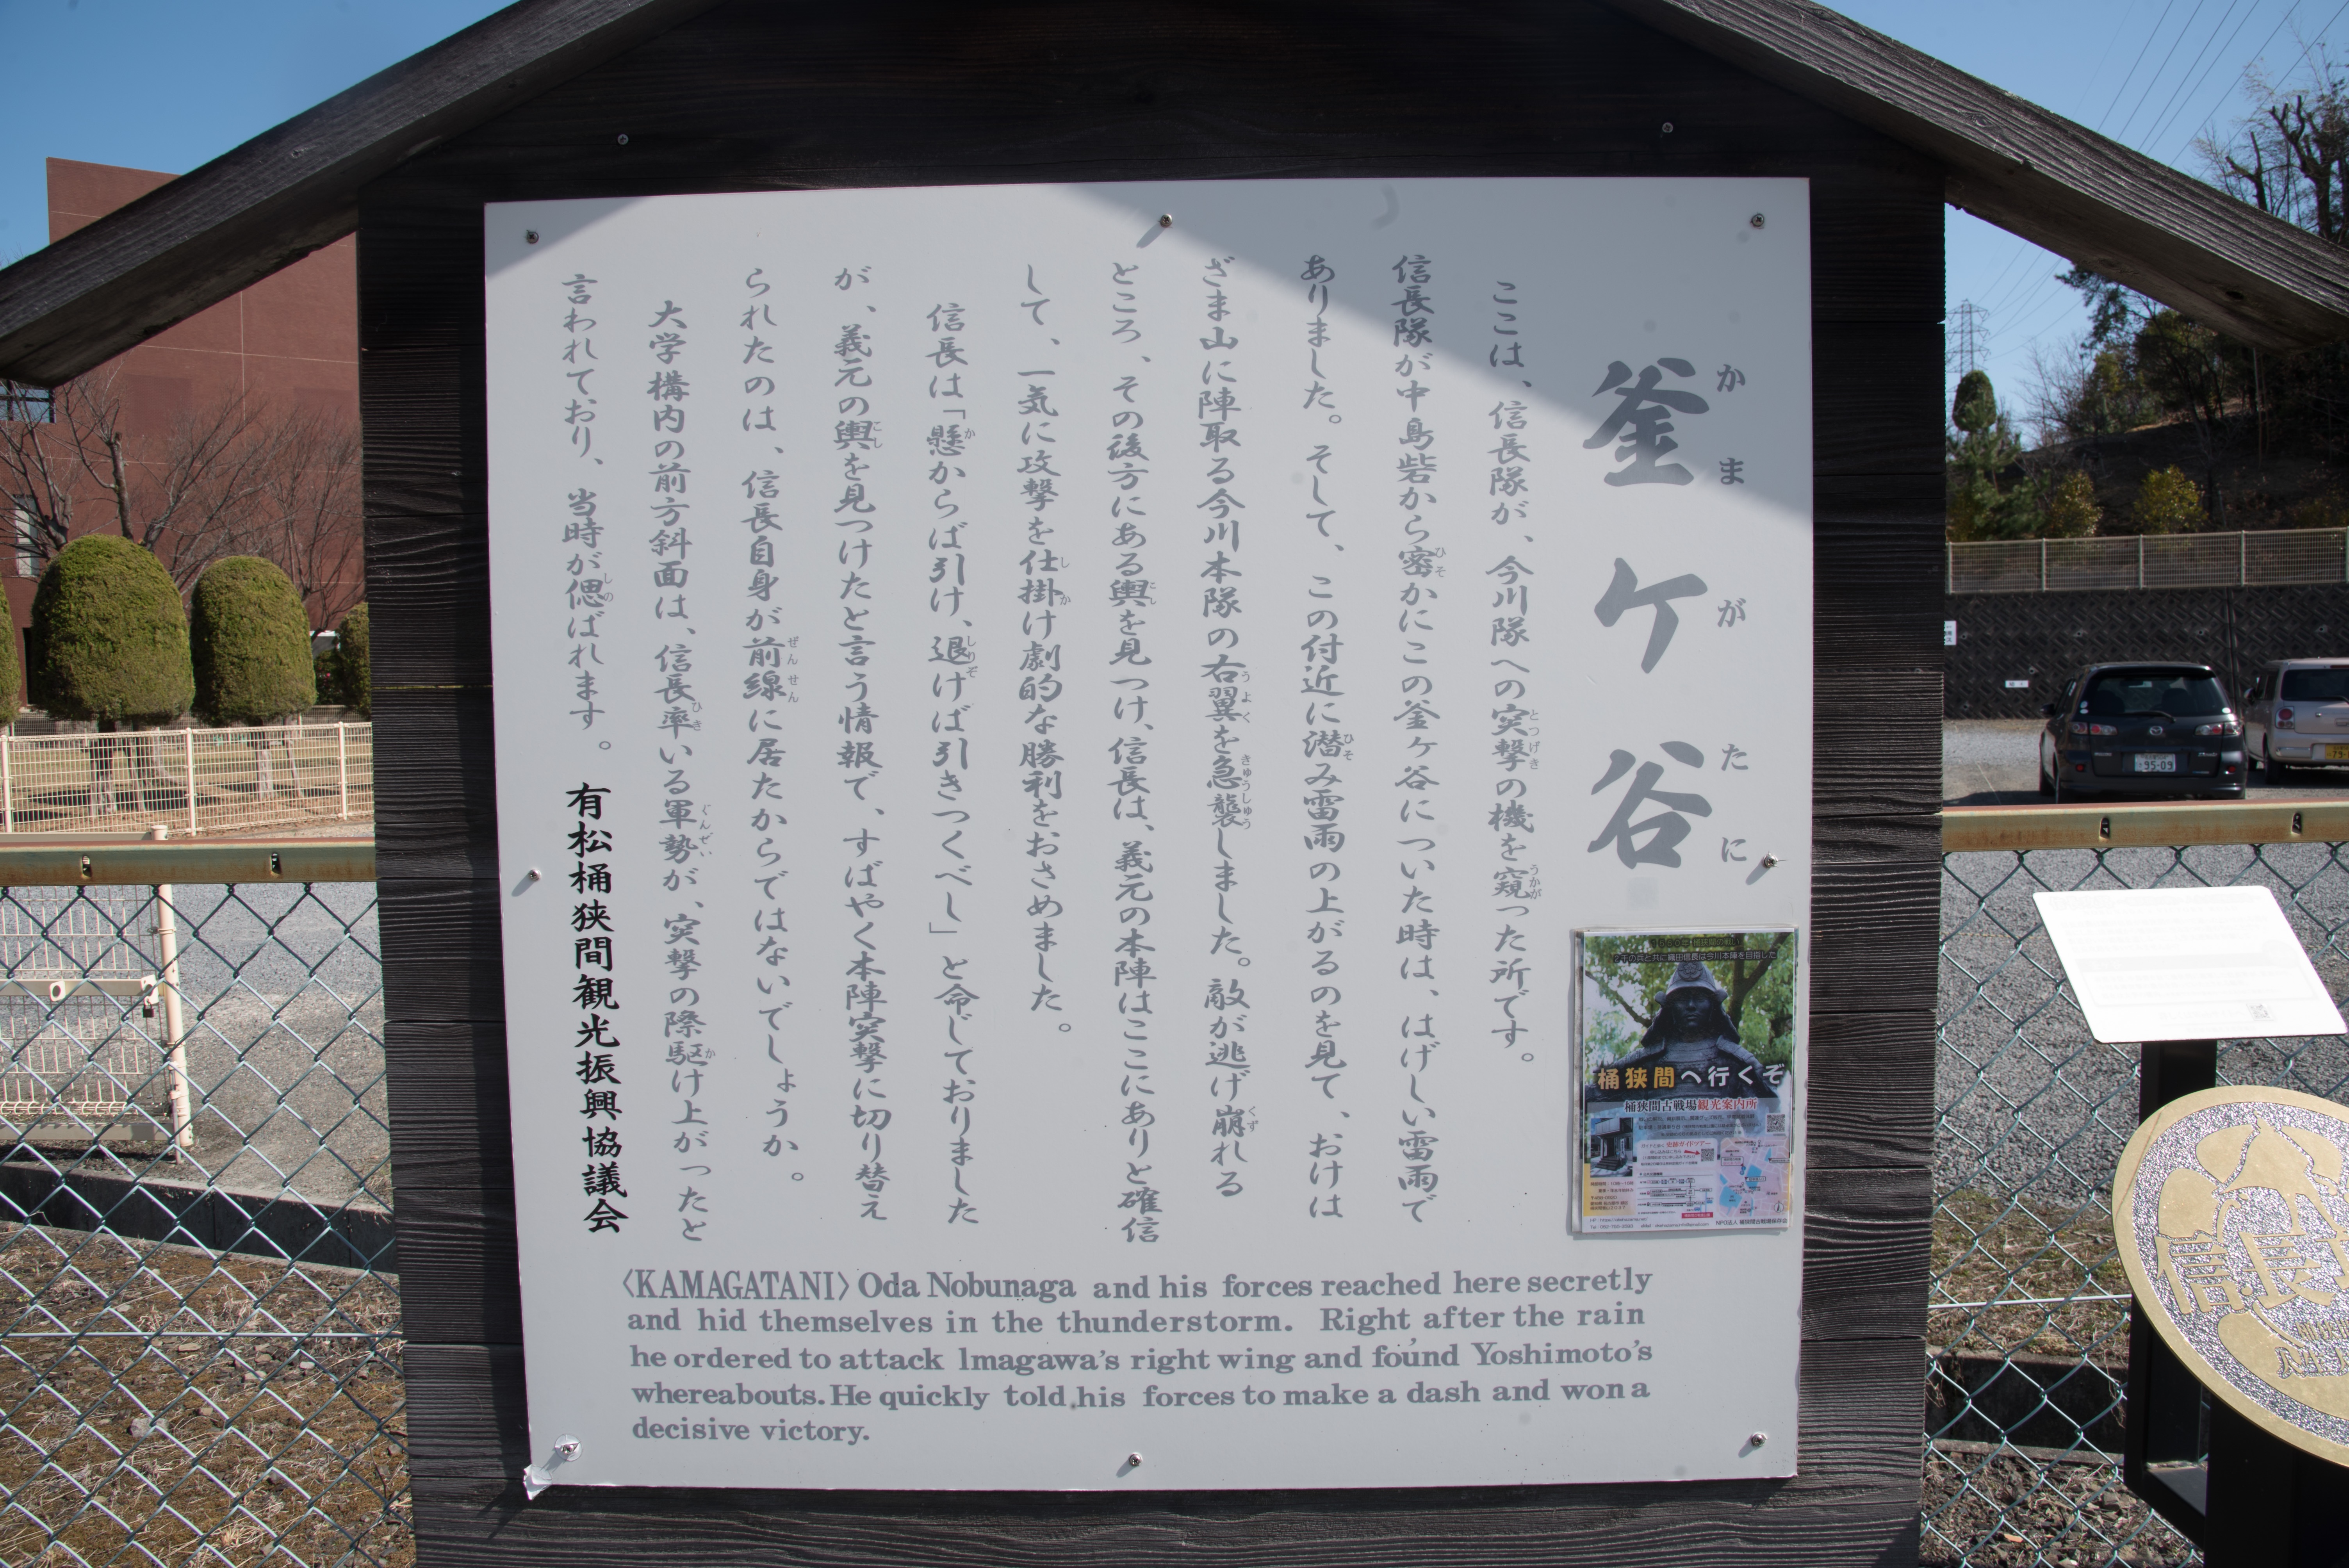 釜ケ谷
かまがたに
ここは、信長隊が、今川隊への突撃の機を窺った所です。
信長隊が中島砦から密かにこの釜ケ谷についた時は、はげしい雷雨で
ありました。そして、この付近に潜み雷雨の上がるのを見て、おけは
ざま山に陣取る今川本隊の右翼を急襲しました。敵が逃げ崩れる
ところ、その後方にある輿を見つけ、信長は、義元の本陣はここにありと確信
して、一気に攻撃を仕掛け劇的な勝利をおさめました。
信長は「懸からば引け、退けば引きつくべし」と命じておりました
が、義元の輿を見つけたと言う情報で、すばやく本陣突撃に切り替え
られたのは、信長自身が前線に居たからではないでしょうか。
大学構内の前方斜面は、信長率いる軍勢が、突撃の際駆け上がったと
言われており、当時が偲ばれます。
有松桶狭間観光振興協議会
〈KAMAGATANI〉Oda Nobunaga and his forces reached here secretly
and hid themselves in the thunderstorm. Right after the rain
he ordered to attack lmagawa's right wing and found Yoshimoto's
whereabouts. He quickly told his forces to make a dash and won a
decisive victory.
千の兵と共に織田信長は今川本陣を目指した
桶狭間へ行くぞ
桶狭間古戦場観光案内所
NPO法人 桶狭間古戦場保存会
95-09
信長